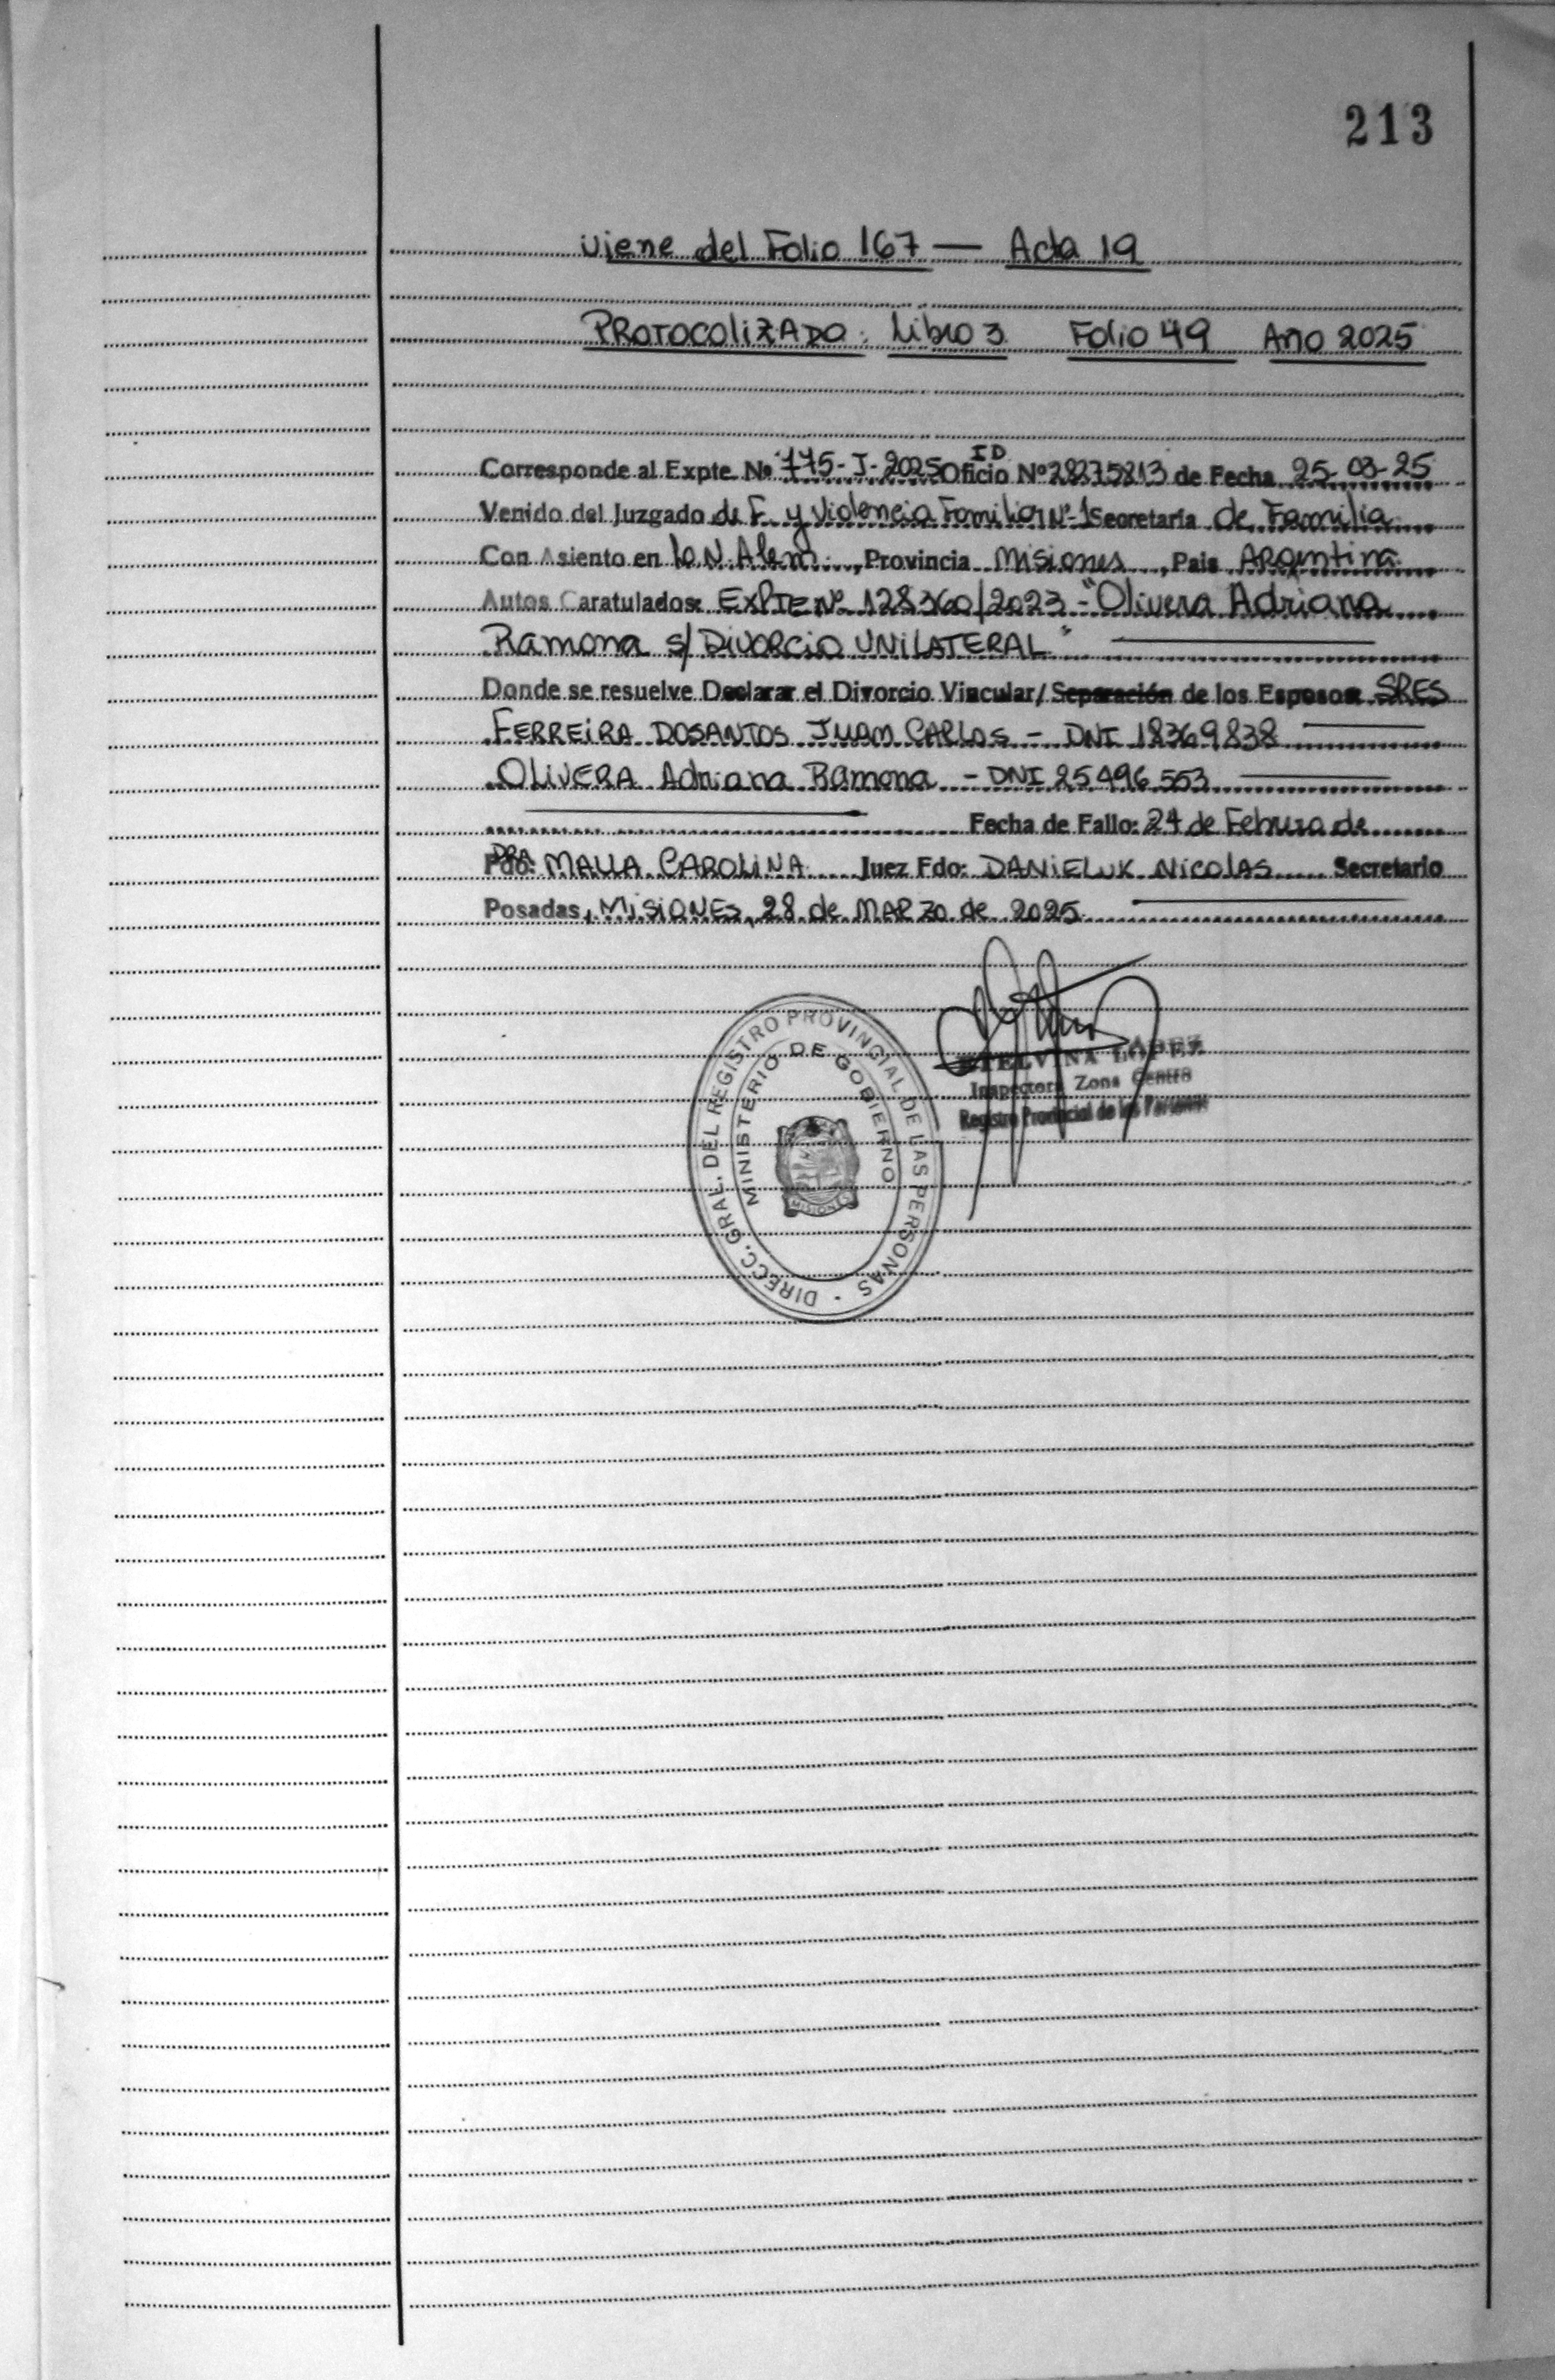 213
Viene del Folio 167 — Acta 19
PROTOCOLIZADO: Libro 3 Folio 49 Año 2025
Corresponde al Expte. Nº 775-I-2025 Oficio ID Nº 28275813 de Fecha 25-03-25
Venido del Juzgado de F. y Violencia Familiar Nº 1 Secretaria de Familia
Con Asiento en L.N. Alem, Provincia Misiones, Pais Argentina
Autos Caratulados: EXPTE Nº 128360/2023 - "Olivera Adriana
Ramona s/ DIVORCIO UNILATERAL"
Donde se resuelve Declarar el Divorcio Vincular/ Separación de los Esposos SRES
FERREIRA DOSANTOS JUAM CARLOS - DNI 18369838
OLIVERA Adriana Ramona - DNI 25496.553
Fecha de Fallo: 24 de Febrero de
Fdo: DRA MALLA CAROLINA Juez Fdo: DANIELUK NICOLAS Secretario
Posadas, MISIONES, 28 de MARZO de 2025
ETELVINA LOPEZ
Inspectora Zona Centro
Registro Provincial de las Personas
DIRECC. GRAL. DEL REGISTRO PROVINCIAL DE LAS PERSONAS -
MINISTERIO DE GOBIERNO
MISIONES